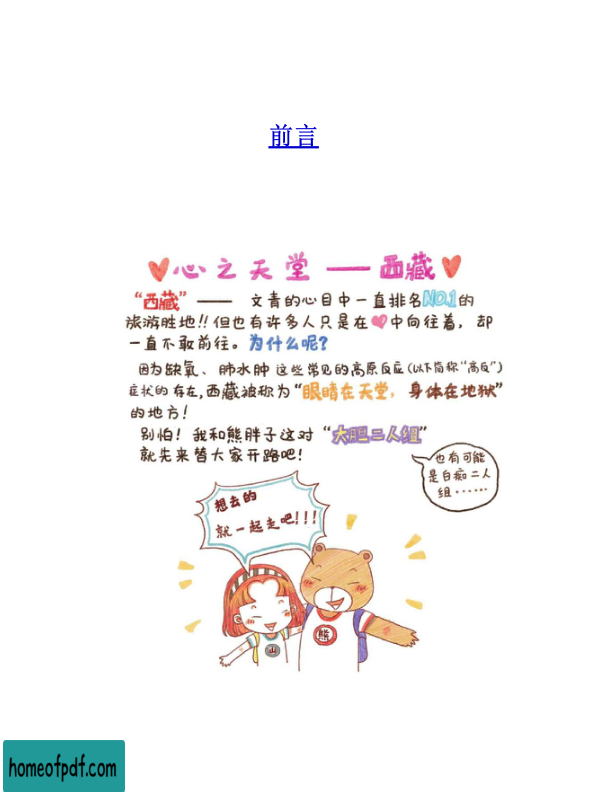 前言
心之天堂——西藏
“西藏”—— 文青的心目中一直排名NO.1的
旅游胜地!!但也有许多人只是在❤中向往着，却
一直不敢前往。为什么呢?
因为缺氧、肺水肿这些常见的高原反应(以下简称“高反”)
症状的存在,西藏被称为“眼睛在天堂，身体在地狱”
的地方!
别怕!我和熊胖子这对“大胆二人组”
就先来替大家开路吧!
也有可能
是白痴二人
组······
想去的
就一起走吧!!!
山
熊
homeofpdf.com